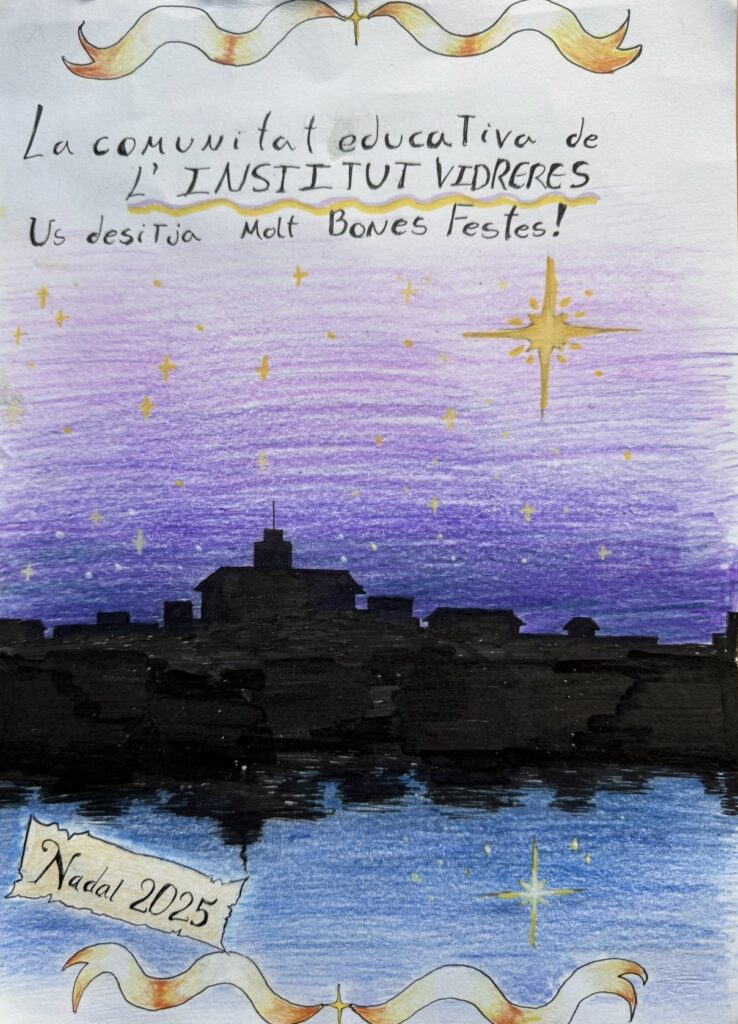 La comunitat educativa de
L'INSTITUT VIDRERES
Us desitja Molt Bones Festes!
Nadal 2025